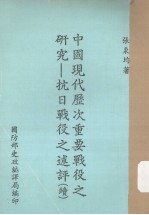 張秉均著
中國現代歷次重要戰役之
研究—抗日戰役之述評(續)
國防部史政編譯局編印